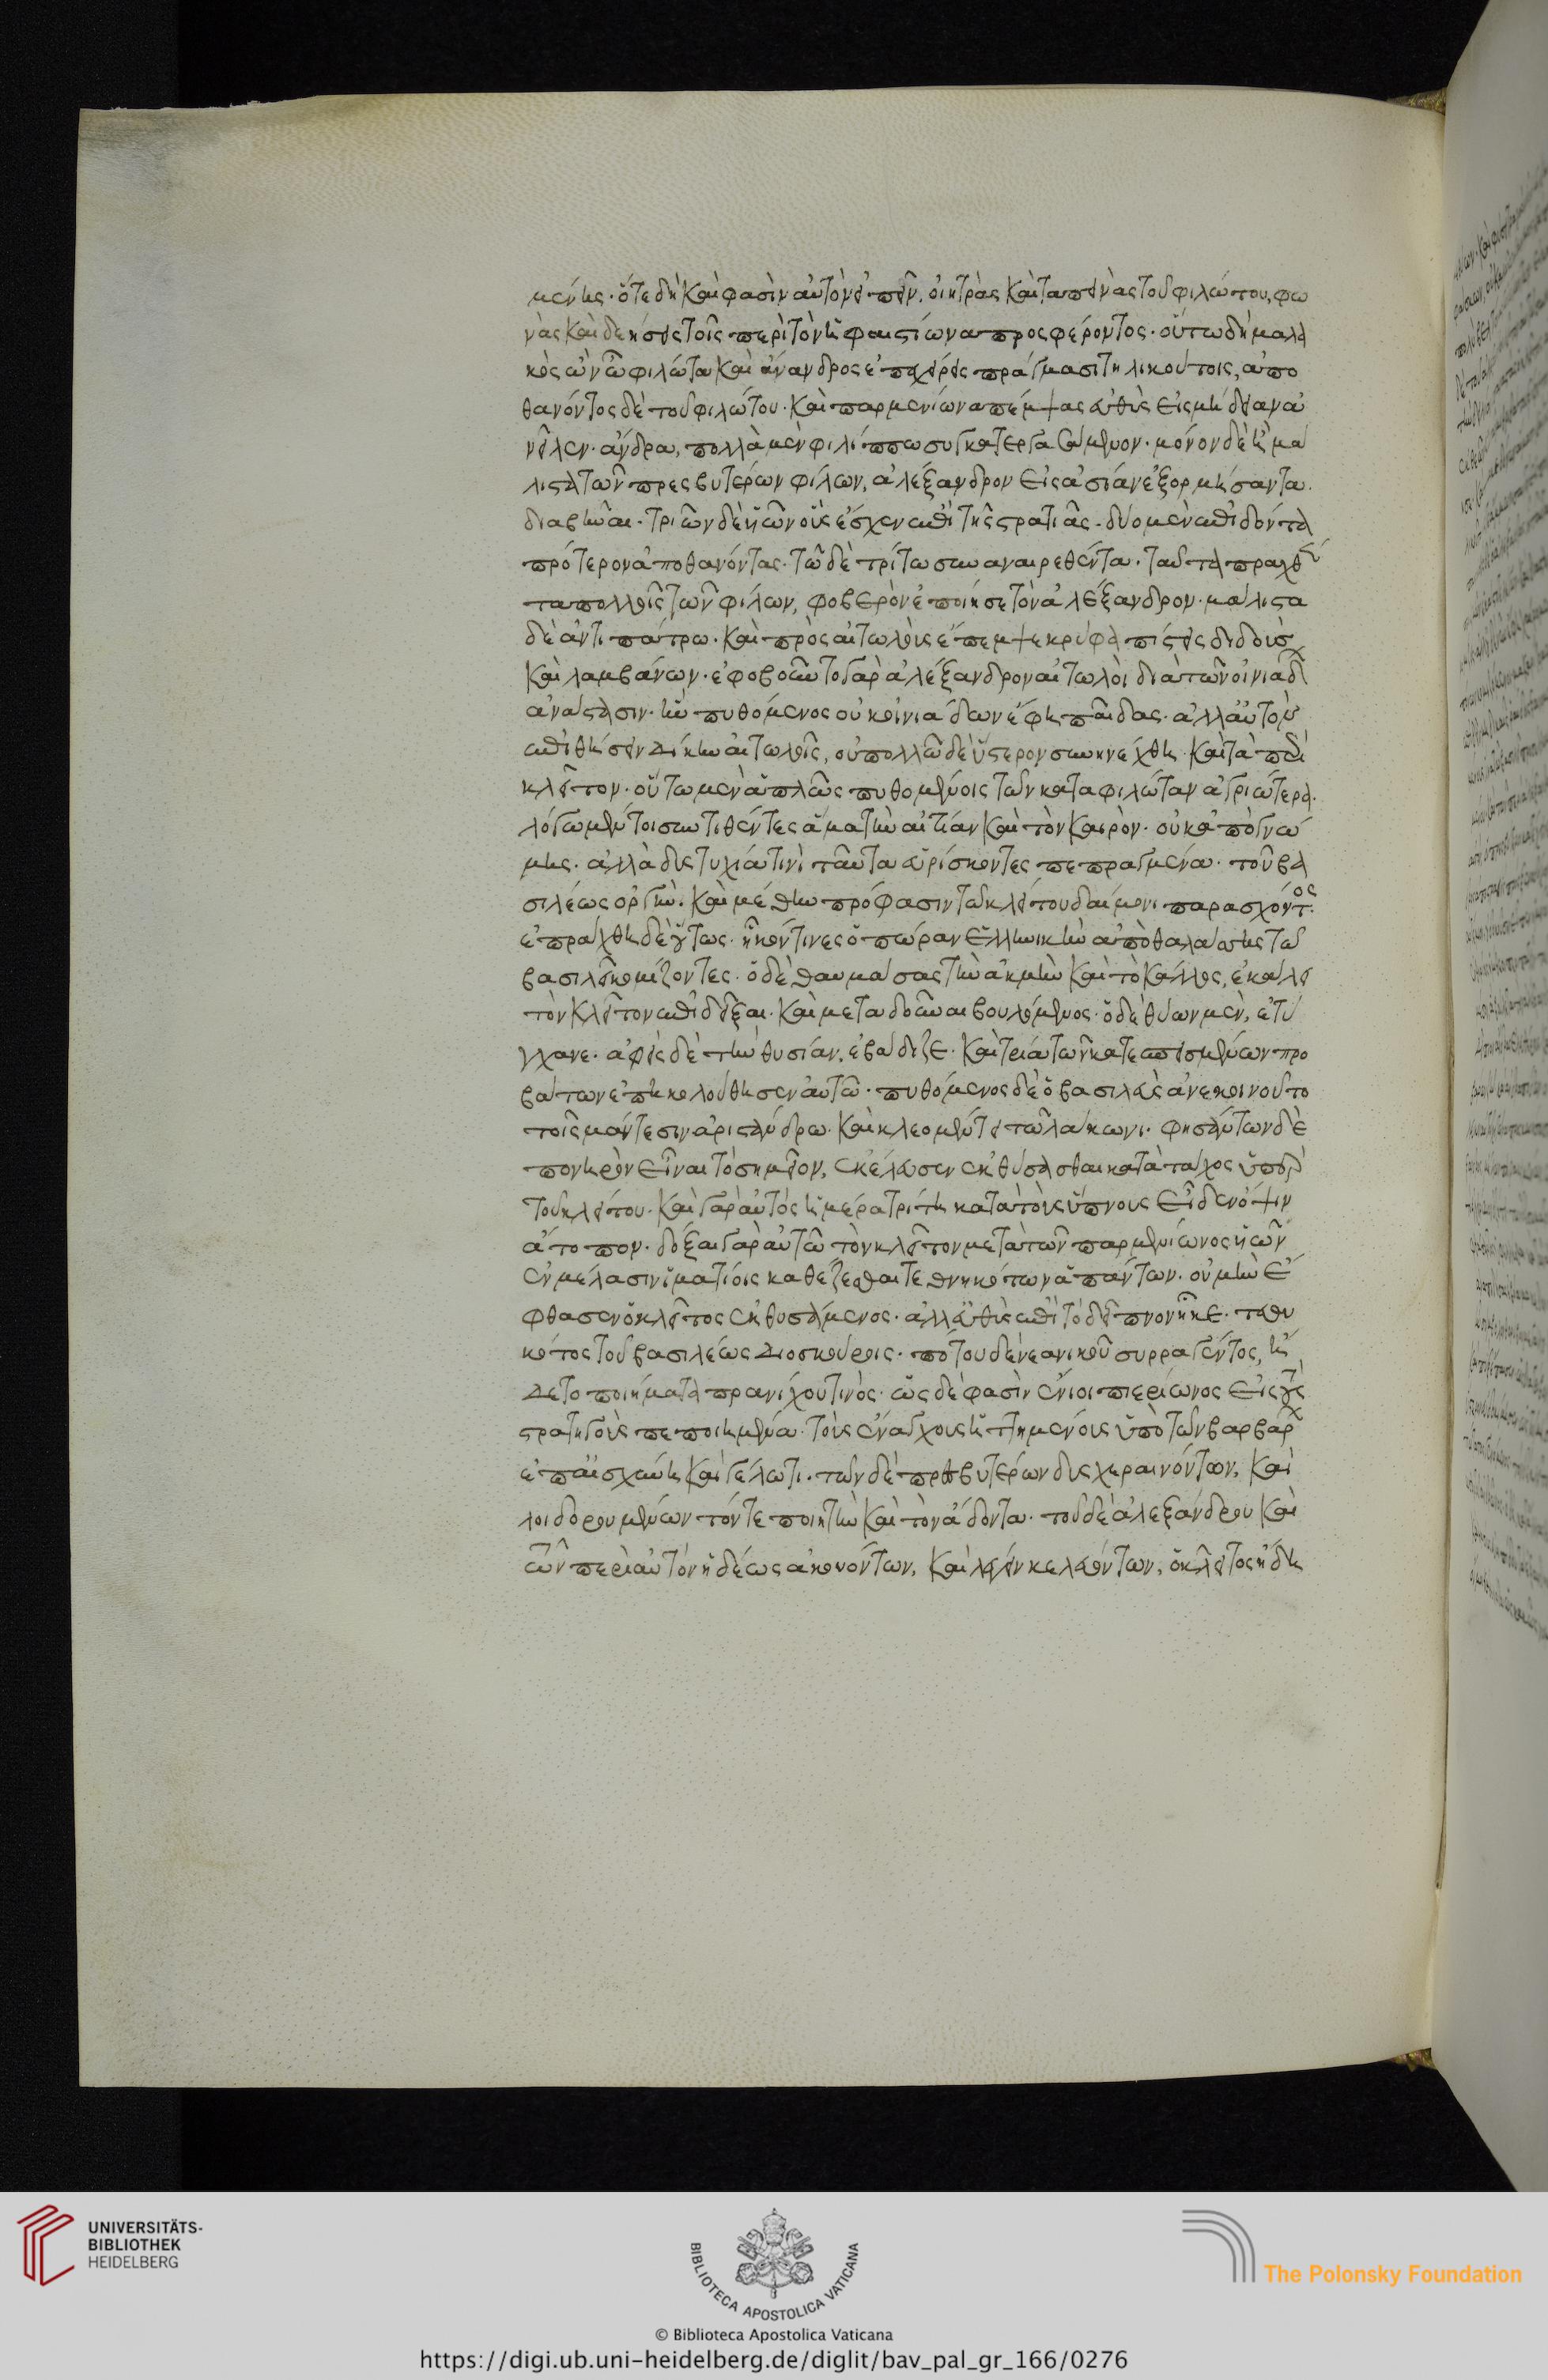 μένης· ὅτε δὴ καὶ φασὶν αὐτὸν εἰπεῖν, οἰκτρὰς καὶ ταπεινὰς τοῦ φιλώτου, φω
νὰς καὶ δεήσεις τοῖς περὶ τὸν ἡφαιστίωνα προσφέροντος· οὕτω δὴ μαλα
κὸς ὢν ὦ φιλώτα καὶ ἄνανδρος ἐπεχείρεις πράγμασι τηλικούτοις, ἀπο
θανόντος δὲ τοῦ φιλώτου· καὶ παρμενίωνα πέμψας εὐθὺς εἰς μήδειαν ἀ
νεῖλεν· ἄνδρα, πολλὰ μὲν φιλίππω συγκατεργασάμενον· μόνον δὲ ἢ μά
λιστα τῶν πρεσβυτέρων φίλων, ἀλέξανδρον εἰς ἀσίαν ἐξορμήσαντα
διαβῆναι· τριῶν δὲ ὑῶν οὓς ἔσχεν ἐπὶ τῆς στρατιᾶς· δύο μὲν ἐπιδόντα
πρότερον ἀποθανόντας· τῶ δὲ τρίτω συναναιρεθέντα· ταῦτα πραχθέν
τα πολλοῖς τῶν φίλων, φοβερὸν ἐποίησε τὸν ἀλέξανδρον· μάλιστα
δὲ ἀντιπάτρω· καὶ πρὸς αἰτωλοὺς ἔπεμψε κρύφα πίστεις διδοὺς
καὶ λαμβάνων· ἐφοβοῦντο γὰρ ἀλέξανδρον αἰτωλοὶ διὰ τὴν οἰνιαδῶν
ἀνάστασιν· ἣν πυθόμενος οὐκ οἰνιαδέων ἔφη παῖδας· ἀλλ' αὐτὸν
ἐπιθήσειν δίκην αἰτωλοῖς, οὐ πολλῶ δὲ ὕστερον συνηνέχθη καὶ τὰ περὶ
κλεῖτον· οὕτω μὲν ἁπλῶς πυθομένοις τῶν κατὰ φιλώταν ἀγριώτερα·
λόγω μέντοι συντιθέντες ἅμα τὴν αἰτίαν καὶ τὸν καιρὸν· οὐκ ἀπὸ γνώ
μης· ἀλλὰ δυστυχία τινὶ ταῦτα εὑρίσκοντες πεπραγμένα· τοῦ βα
σιλέως ὀργὴν· καὶ μέθην πρόφασιν τῶ κλείτου δαίμονι παρασχόντος·
ἐπράχθη δὲ οὕτως· ἧκόν τινες ὀπώραν ἑλληνικὴν ἀπὸ θαλάσσης τῶ
βασιλεῖ κομίζοντες· ὁ δὲ θαυμάσας τὴν ἀκμὴν καὶ τὸ κάλλος, ἐκάλει
τὸν κλεῖτον ἐπιδεῖξαι· καὶ μεταδοῦναι βουλόμενος· ὁ δὲ θύων μὲν, ἐτύ
γχανε· ἀφεὶς δὲ τὴν θυσίαν, ἐβάδιζε· καὶ τρία τῶν κατεσπεισμένων προ
βάτων ἐπηκολούθησεν αὐτῶ· πυθόμενος δὲ ὁ βασιλεὺς ἀνεκοινοῦτο
τοῖς μάντεσιν ἀριστάνδρω· καὶ κλεομένει τῶ λάκωνι· φησάντων δὲ
πονηρὸν εἶναι τὸ σημεῖον, ἐκέλευσεν ἐκθύσασθαι κατὰ τάχος ὑπὲρ
τοῦ κλείτου· καὶ γὰρ αὐτὸς ἡμέρα τρίτη κατὰ τοὺς ὕπνους εἶδεν ὄψιν
ἄτοπον· δόξαι γὰρ αὐτῶ τὸν κλεῖτον μετὰ τῶν παρμενίωνος ὑῶν
ἐν μέλασιν ἱματίοις καθέζεσθαι τεθνηκότων ἁπάντων· οὐ μὴν ἔ
φθασεν ὁ κλεῖτος ἐκθυσάμενος· ἀλλ' εὐθὺς ἐπὶ τὸ δεῖπνον ἧκε· τεθυ
κότος τοῦ βασιλέως διοσκούροις· πότου δὲ νεανικοῦ συρραγέντος, ᾔ
δετο ποιήματα πρανίχου τινὸς· ὡς δέ φασὶν ἔνιοι πιερίωνος εἰς τοὺς
στρατηγοὺς πεποιημένα· τοὺς ἔναγχος ἡττημένους ὑπὸ τῶν βαρβάρων
ἐπ' αἰσχύνη καὶ γέλωτι· τῶν δὲ πρεσβυτέρων δυσχεραινόντων, καὶ
λοιδορουμένων τόν τε ποιητὴν καὶ τὸν ἄδοντα· τοῦ δὲ ἀλεξάνδρου καὶ
τῶν περὶ αὐτὸν ἡδέως ἀκουόντων, καὶ λέγειν κελευόντων, ὁ κλεῖτος ἤδη
UNIVERSITÄTS-
BIBLIOTHEK
HEIDELBERG
BIBLIOTECA APOSTOLICA VATICANA
© Biblioteca Apostolica Vaticana
The Polonsky Foundation
https://digi.ub.uni-heidelberg.de/diglit/bav_pal_gr_166/0276